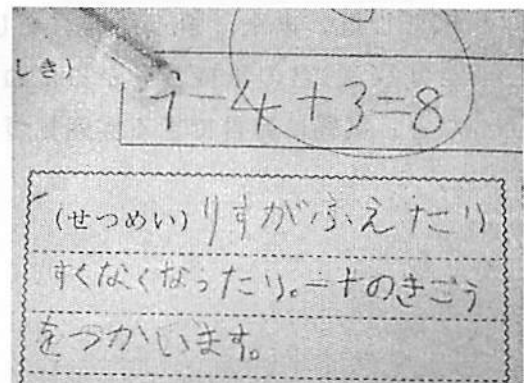 しき)
9-4+3=8
(せつめい)りすがふえたり
すくなくなったり。-+のきごう
をつかいます。